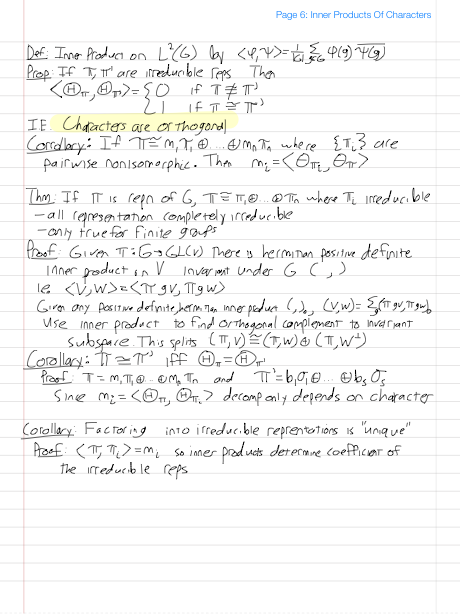 Page 6: Inner Products Of Characters
Def: Inner Product on L²(G) by <φ,Ψ>=1/|G| Σ_{g∈G} φ(g) \overline{Ψ(g)}
Prop: If π, π' are irreducible reps Then
<Θ_π, Θ_π'> = { 0 if π ≇ π'
1 if π ≅ π'
I.E. Characters are orthogonal
Corollary: If π≅ m₁π₁⊕...⊕mₙπₙ where {π_i} are
pairwise nonisomorphic. Then m_i=<Θ_{π_i}, Θ_π>
Thm: If π is repn of G, π≅π₁⊕...⊕πₙ where π_i irreducible
– all representation completely irreducible
– only true for finite groups
Proof: Given π:G→GL(V) There is hermitian positive definite
inner product on V invariant under G ( , )
ie <V,W>=<π gv, π gw>
Given any positive definite, hermitian inner product (,)₀ (V,W)= Σ_g(π gv, π gw)₀
Use inner product to find orthogonal complement to invariant
subspace. This splits (π,V)≅(π,W)⊕(π,W^⊥)
Corollary: π≃π' iff Θ_π=Θ_π'
Proof: π=m₁π₁⊕...⊕mₙπₙ and π'=b₁σ₁⊕...⊕b_sσ_s
Since m_i=<Θ_π, Θ_{π_i}> decomp only depends on character
Corollary: Factoring into irreducible reprentations is "unique"
Proof: <π, π_i>=m_i so inner products determine coefficient of
the irreducible reps